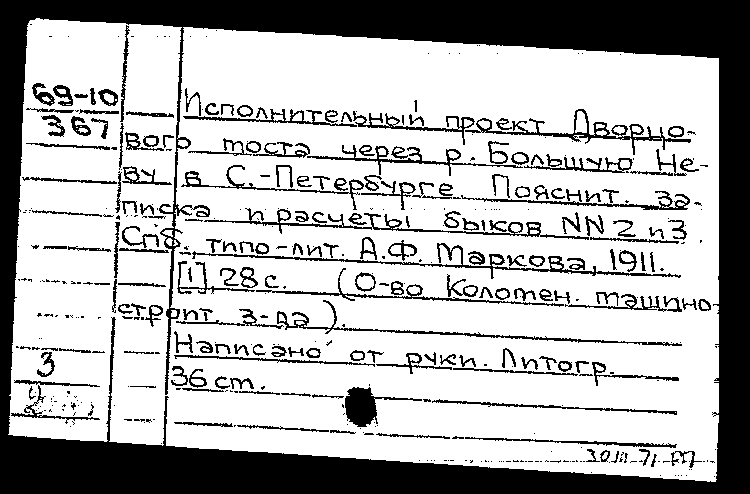 69-10
367
Исполнительный проект Дворцо-
вого моста через р. Большую Не-
ву в С.-Петербурге. Пояснит. за-
писка и расчеты быков NN 2 и 3.
Спб., типо-лит. А.Ф. Маркова, 1911.
[1], 28 с. (О-во Коломен. машино-
строит. з-да).
Написано от руки. Литогр.
36 см.
3